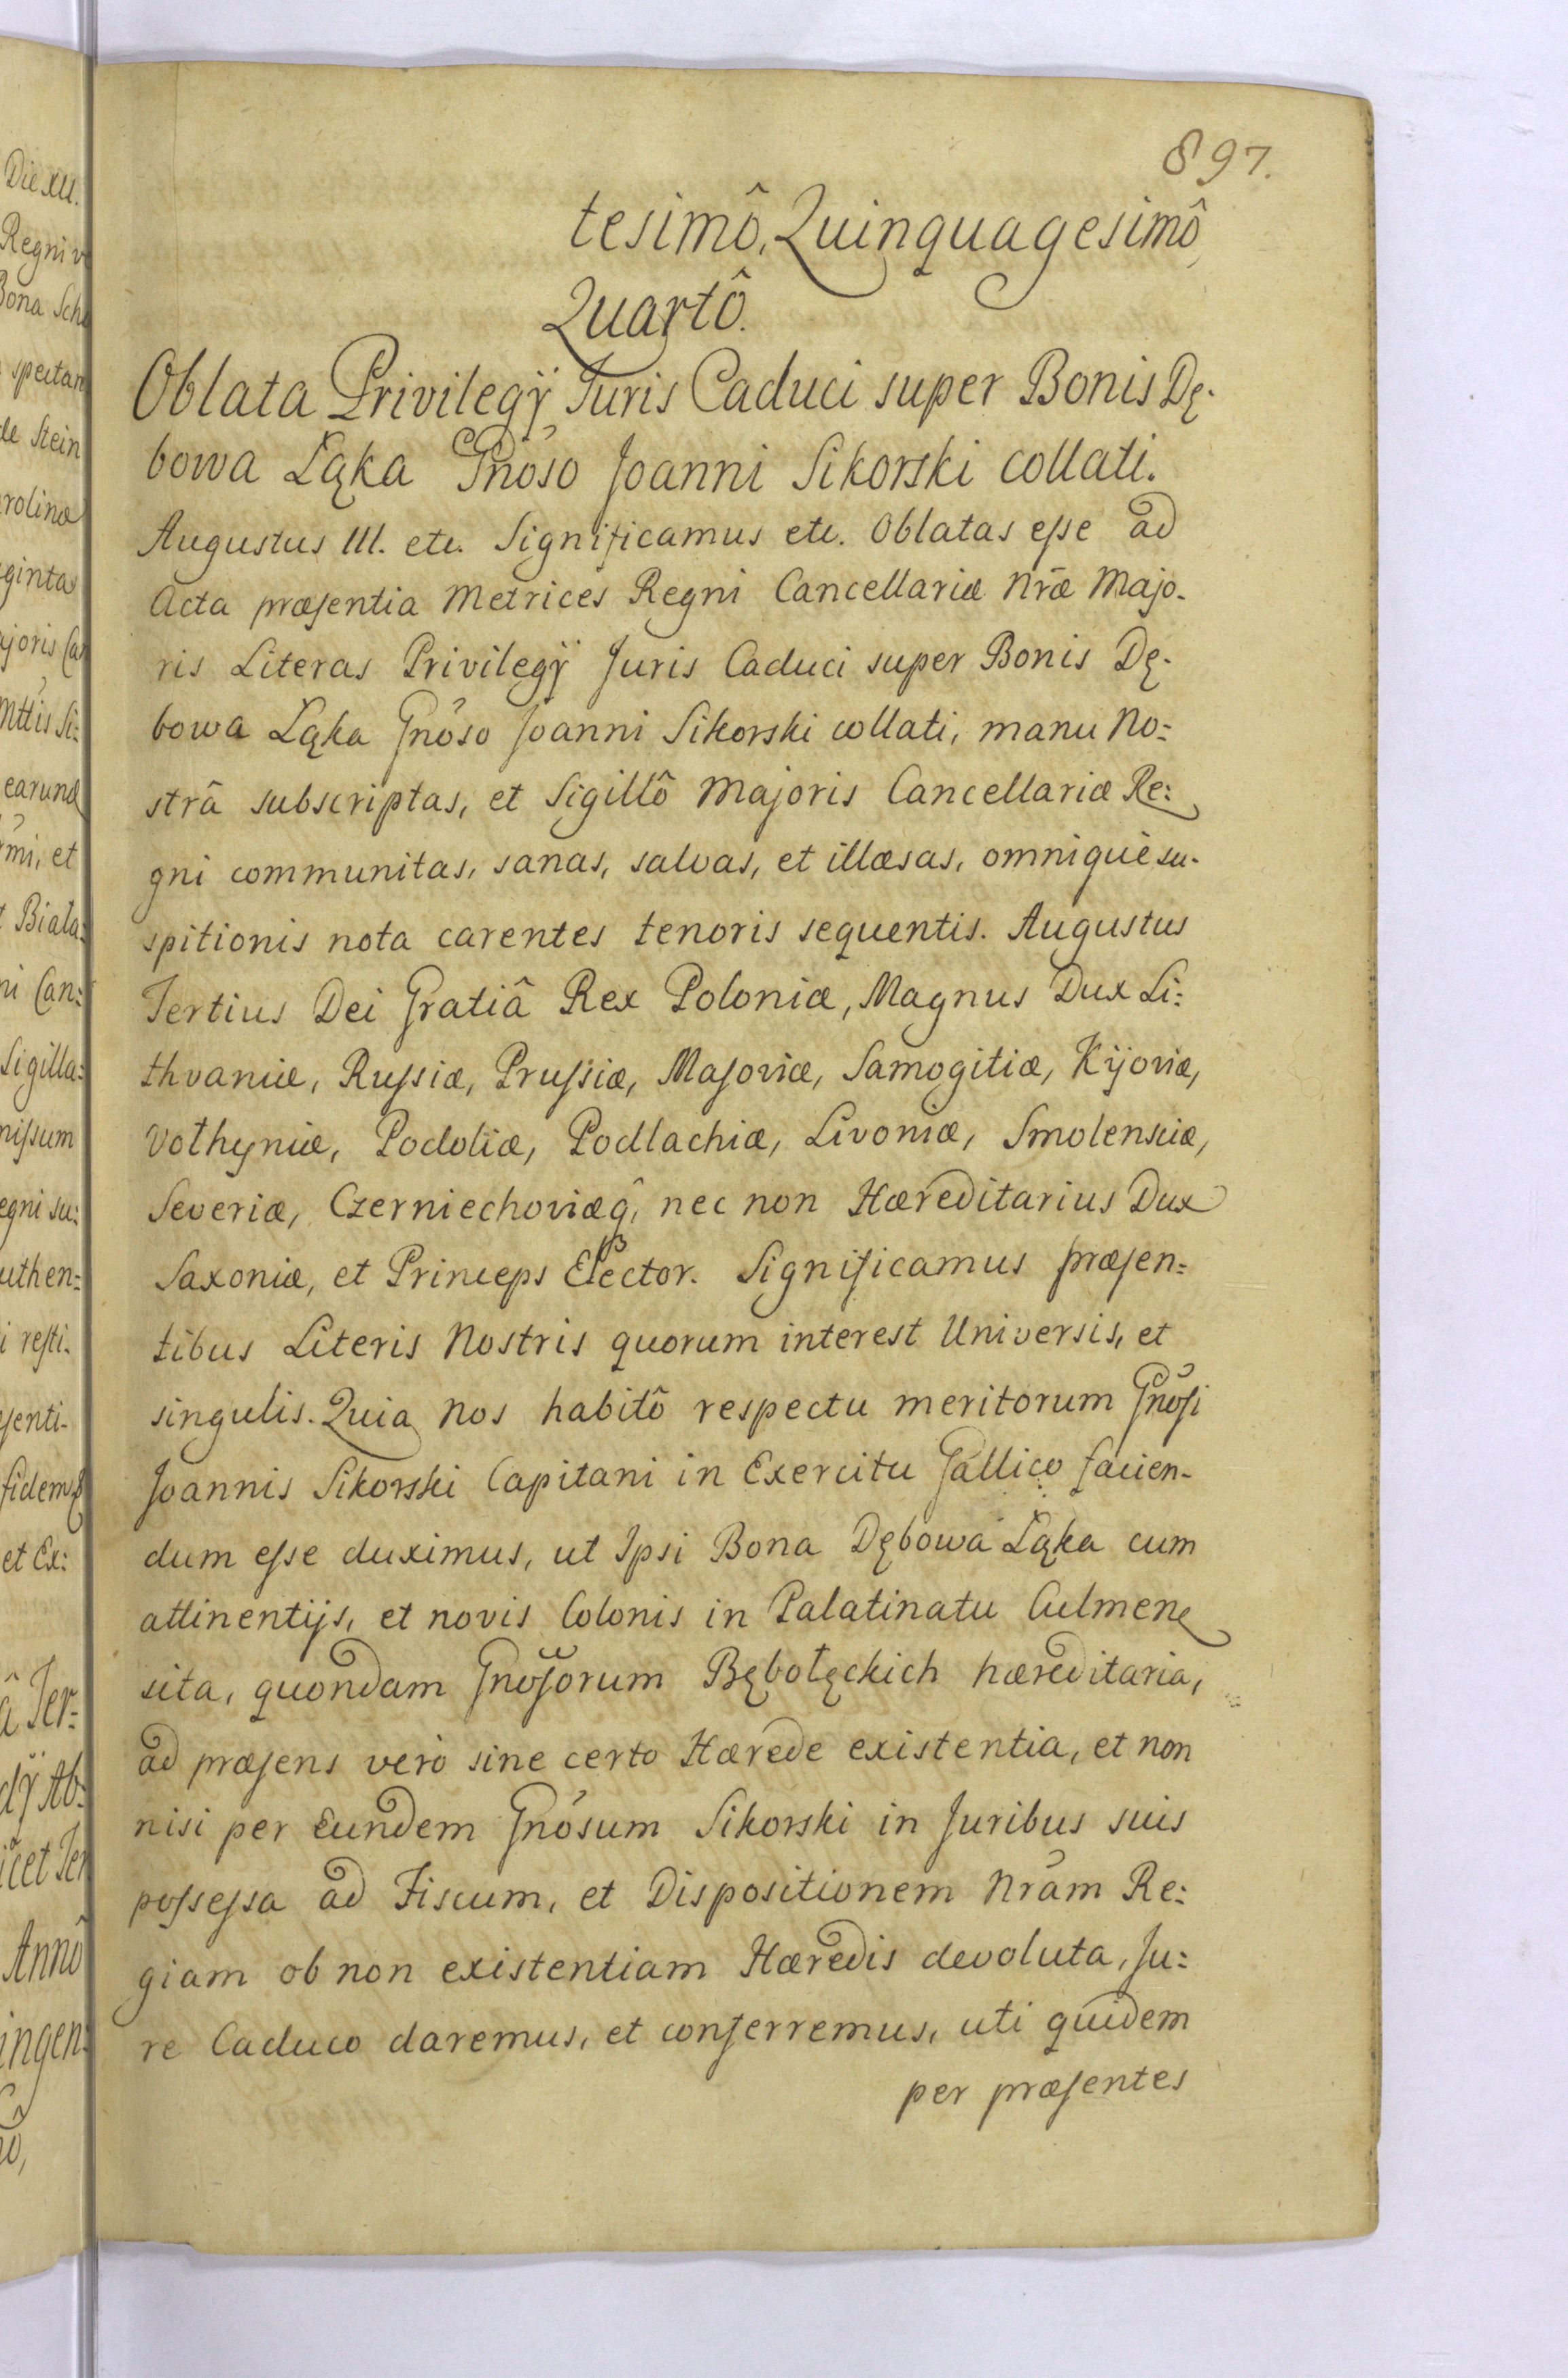 897.
tesimô, Quinquagesimô
Quartô.
Oblata Privilegÿ Juris Caduci super Bonis Dę-
bowa Ląka Gnõso Joanni Sikorski collati.
Augustus III. etc. Significamus etc. Oblatas eſse ad
Acta præsentia Metrices Regni Cancellariæ Nrãe Majo-
ris Literas Privilegÿ Juris Caduci super Bonis Dę-
bowa Ląka Gnõso Joanni Sikorski collati, manu No=
strâ subscriptas, et Sigillô Majoris Cancellariæ Re=
gni communitas, sanas, salvas, et illæsas, omniquè su-
spitionis nota carentes tenoris sequentis. Augustus
Tertius Dei Gratiâ Rex Poloniæ, Magnus Dux Li=
thvaniæ, Ruſsiæ, Pruſsiæ, Masoviæ, Samogitiæ, Kijoviæ,
Volhyniæ, Podoliæ, Podlachiæ, Livoniæ, Smolensciæ,
Severiæ, Czerniechoviæq̃, nec non Hæreditarius Dux
Saxoniæ, et Princeps Elector. Significamus præsen=
tibus Literis Nostris quorum interest Universis, et
singulis. Quia Nos habitô respectu meritorum Gnõsi
Joannis Sikorski Capitani in Exercitu Gallico facien-
dum eſse duximus, ut Ipsi Bona Dębowa Ląka cum
attinentijs, et novis Colonis in Palatinatu Culmen
sita, quondam Gnõsorum Bębołęckich hæreditaria,
ad præsens verò sine certo Hærede existentia, et non
nisi per Eundem Gnõsum Sikorski in Juribus suis
poſseſsa ad Fiscum, et Dispositionem Nrãm Re=
giam ob non existentiam Hæredis devoluta, Ju=
re Caduco daremus, et conferremus, uti quidem
per præsentes